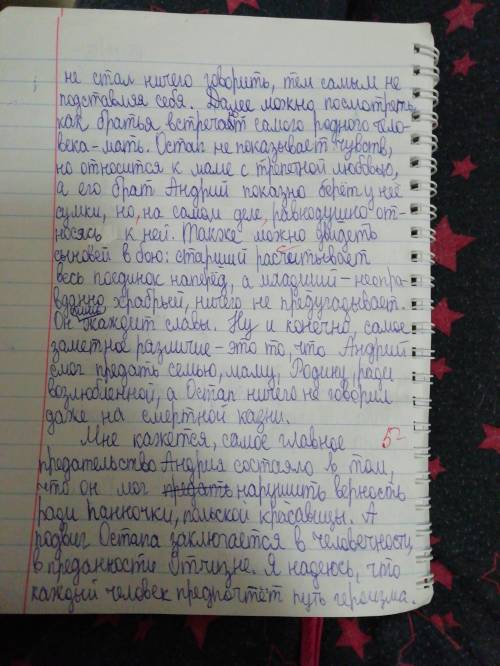 не стал ничего говорить, тем самым не
подставляя себя. Далее можно посмотреть,
как братья встречают самого родного чело-
века-мать. Остап не показывает чувств,
но относится к маме с трепетной любовью,
а его брат Андрий показно берёт у неё
сумки, но, на самом деле, равнодушно от-
носясь к ней. Также можно увидеть
сыновей в бою: старший расчитывает
весь поединок наперёд, а младший-неопра-
вданно храбрый, ничего не предугадывает.
Он жаждит славы. Ну и конечно, самое
заметное различие-это то, что Андрий
смог предать семью, маму, Родину, ради
возлюбленной, а Остап ничего не говорил
даже на смертной казни.
Мне кажется, самое главное 5-
предательство Андрия состояло в том,
что он мог нарушить верность
ради панночки, польской красавицы. А
подвиг Остапа заключается в человечности,
в преданности Отчизне. Я надеюсь, что
каждый человек предпочтёт путь героизма.